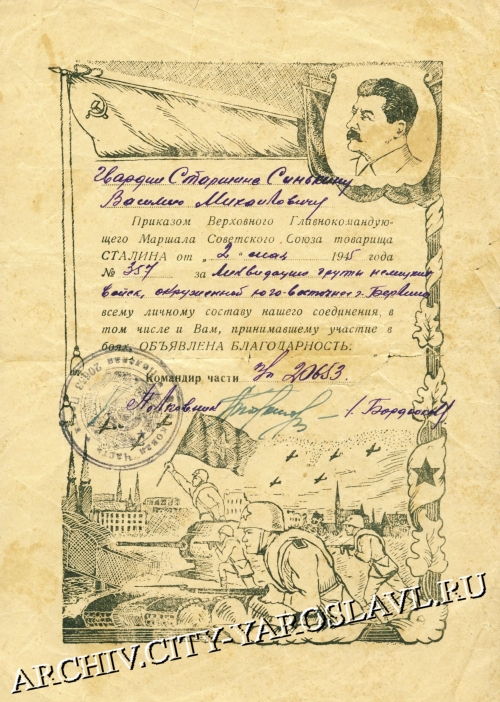 Гвардии Старшине Синькину
Василию Михайловичу
Приказом Верховного Главнокомандую-
щего Маршала Советского Союза товарища
СТАЛИНА от „2“ мая 1945 года
№ 357 за ликвидацию группы немецких
войск, окруженной юго-восточнее г. Берлина
всему личному составу нашего соединения, в
том числе и Вам, принимавшему участие в
боях, ОБЪЯВЛЕНА БЛАГОДАРНОСТЬ.
Командир части п/п 20653.
Полковник
ARCHIV.CITY-YAROSLAVL.RU